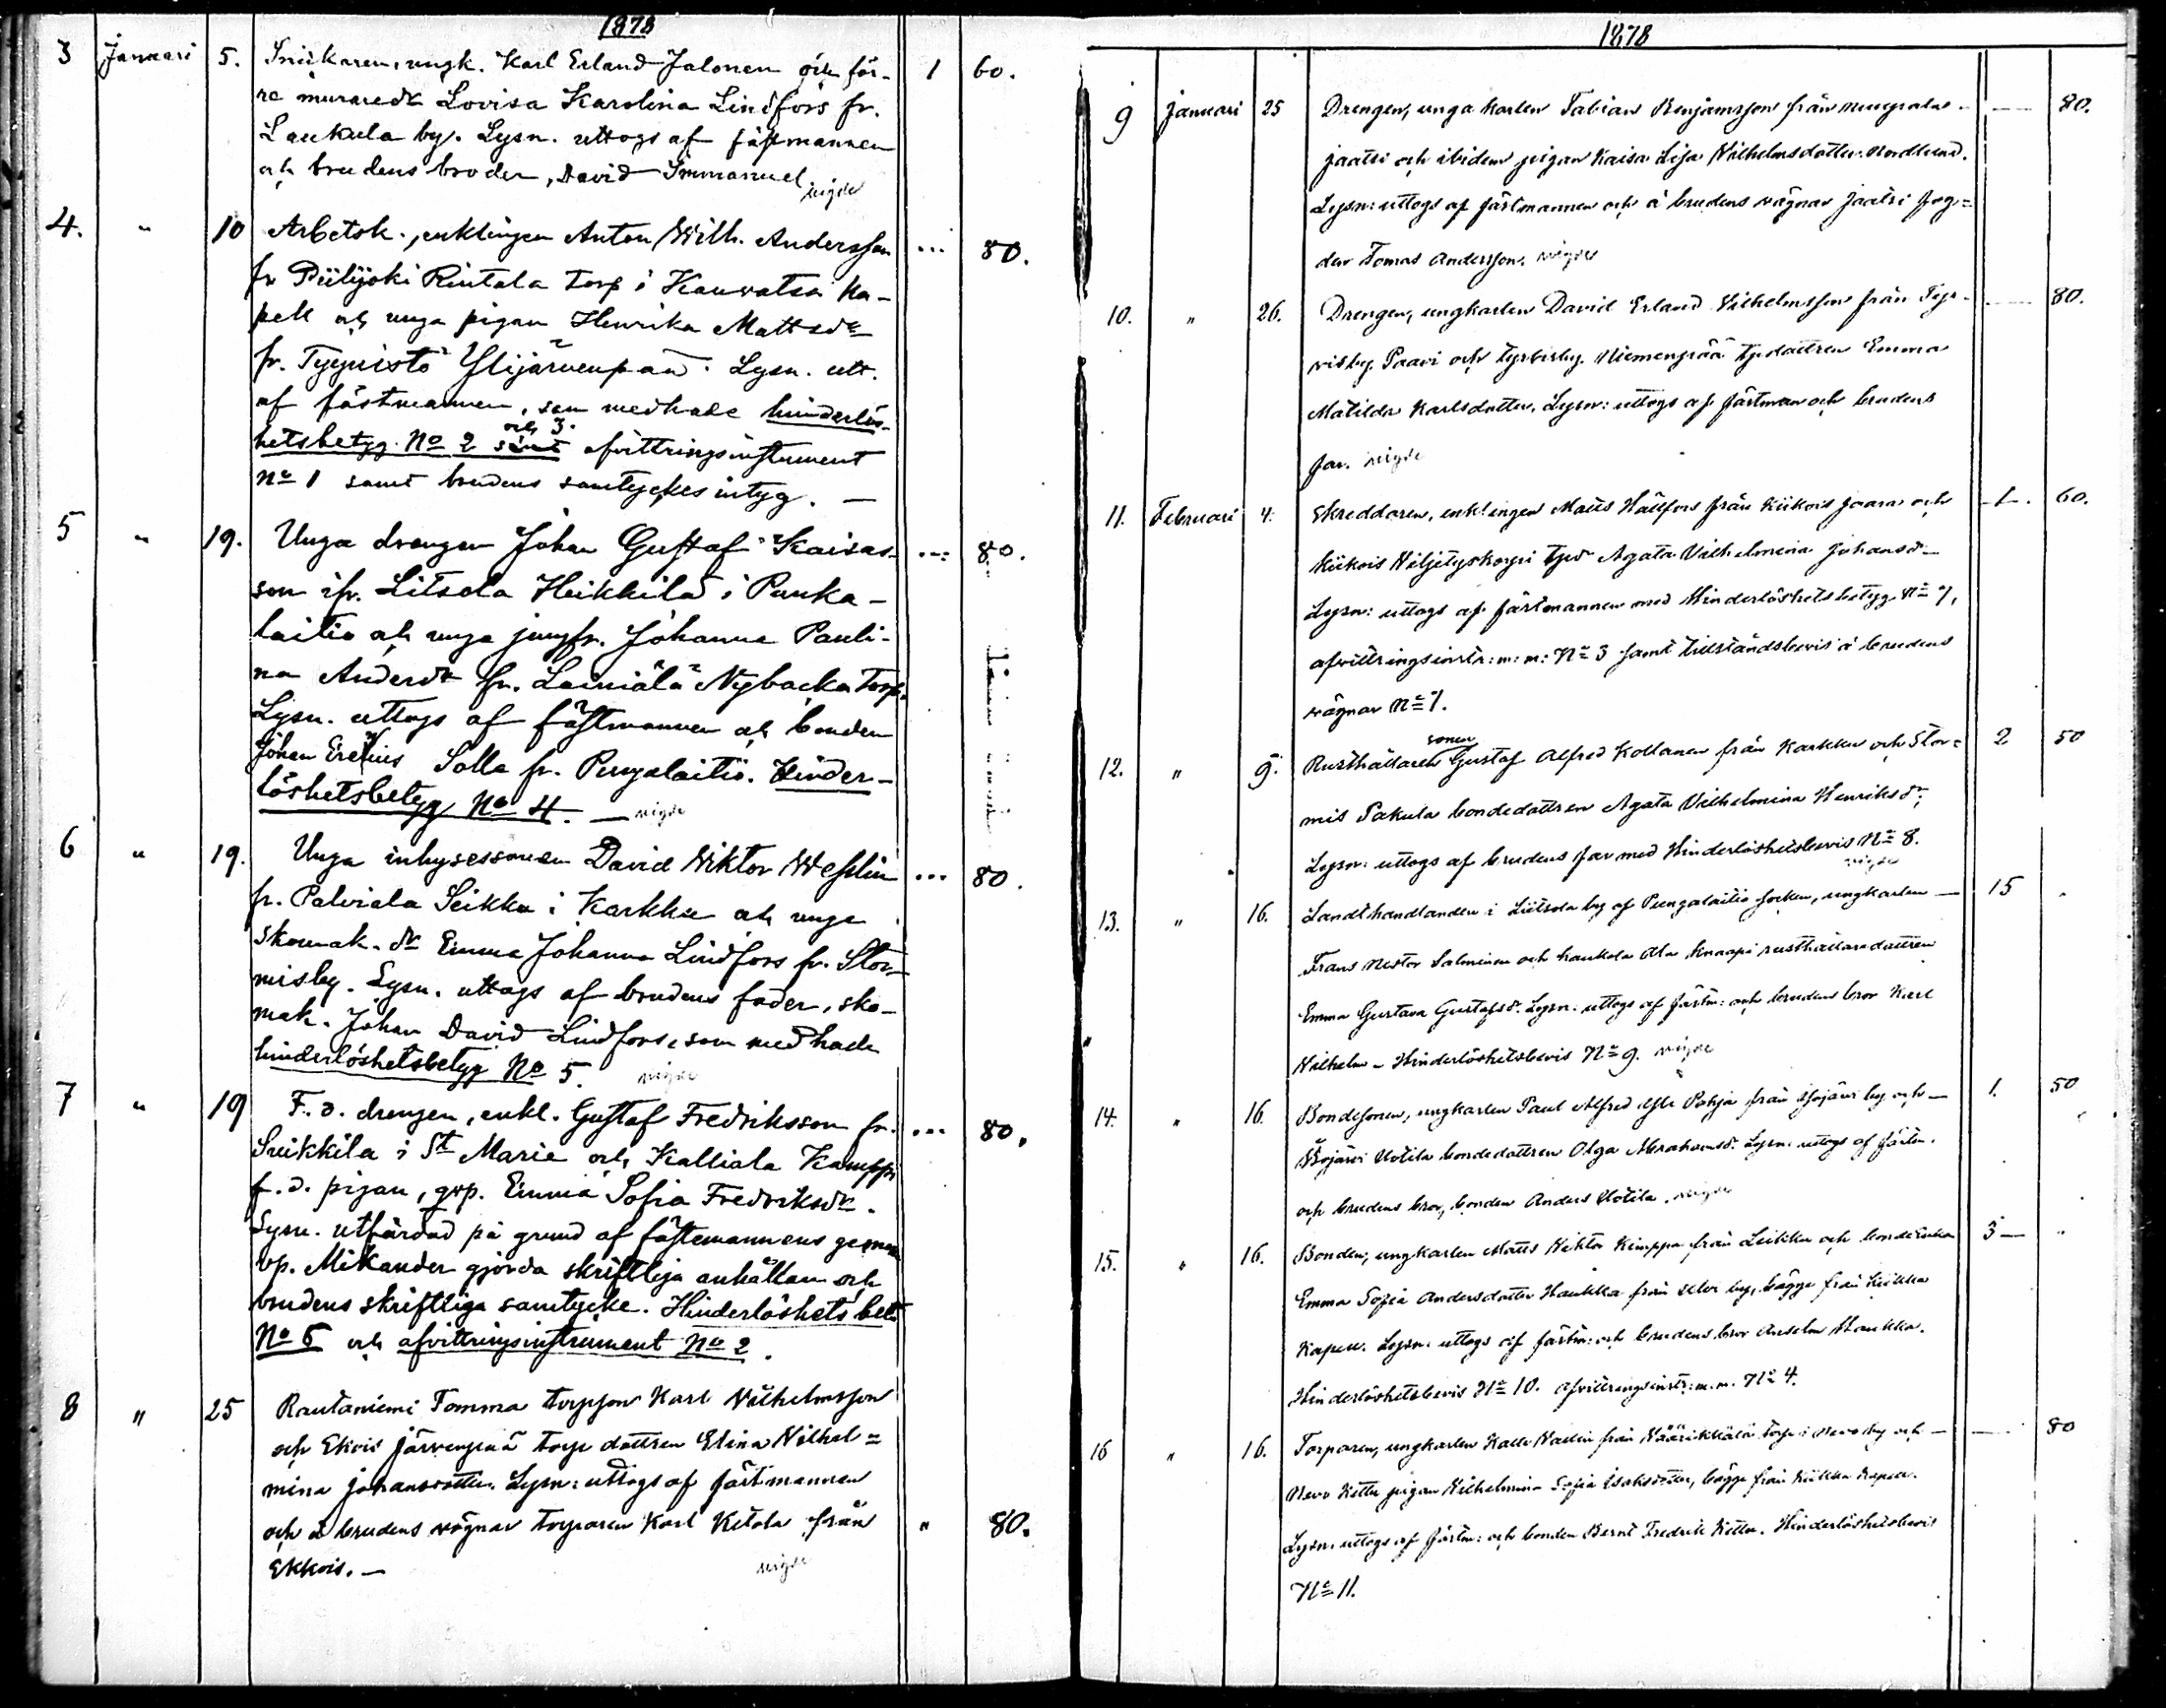 1878
3 Januari 5. Snickaren, ungk. Karl Erland Jalonen och för- 1 60.
re muraredr Lovisa Karolina Lindfors fr.
Laukula by. Lysn. uttogs af fästmannen
och brudens broder, David Immanuel vigde
4. " 10 Arbetsk., enklingen Anton Wilh. Andersson ... 80.
fr Piilijoki Rintala torp i Kauvatsa ka-
pell och unga pigan Henrika Mattsdr
fr. Tyrvistö Ylijärvenpää. Lysn. utt.
af fästmannen, som medhade hinderlös-
och 3.
hetsbetyg No 2 samt afvittringsinstrument
No 1 samt brudens samtyckes intyg. —
5 " 19. Unga drengen Johan Gustaf Kaisas- ... 80.
son ifr. Litsola Heikkilä i Punka-
laitio och unga jungfr. Johanna Pauli-
na Andersdr fr. Lainiälä Nybacka torp.
Lysn. uttogs af fästmannen och bonden
Johan Erenius Salla fr. Pungalaitio. Hinder-
löshetsbetyg No 4. — vigde
6 " 19. Unga inhysessonen David Wiktor Wesslin ... 80.
fr. Palviala Seikka i Karkku och unga
skomak. dr Emma Johanna Lindfors fr. Stor-
misby. Lysn. uttogs af brudens fader, sko-
mak. Johan David Lindfors, som medhade
hinderlöshetsbetyg No 5. vigde
7 " 19 F. d. drengen, enkl. Gustaf Fredriksson fr. ... 80.
Suikkila i St Marie och Kalliala Kamppi
f. d. pigan, gvp. Emma Sofia Fredriksdr.
Lysn. utfärdad på grund af fästemannens genom
vp. Mikander gjorda skriftliga anhållan och
brudens skriftliga samtycke. Hinderlöshetsbet.
No 6 och afvittringsinstrument No 2.
8 " 25 Rautaniemi Tomma torpson Karl Vilhelmsson
och Ekois Järvenpää torp dottren Elina Vilhel=
mina Johansdotter. Lysn: uttogs af fästmannen
och å brudens vägnar torparen Karl Kitola från " 80.
Ekkois. — vigde
1878
9 Januari 25 Drengen, unga karlen Fabian Benjamsson från — 80.
Jaatsi och ibidem pigan Kaisa Lisa Vilhelmsdotter Nordlund.
Lysn: uttogs af fästmannen och å brudens vägnar Jaatsi fog=
den Tomas Andersson. vigde
10. " 26. Drengen, ungkarlen David Erland Vilhelmsson från Tyr- — 80.
visby Paavi och Tyrvisby Niemenpää tpdottren Emma
Matilda Karlsdotter. Lysn: uttogs af fästman och brudens
far. vigde
11. Februari 4. Skreddaren, enklingen Matts Hällfors från Kiikois Jaara och 1. 60.
Kiikois Viljetyskorpi tpdr Agata Vilhelmina Johansdr
Lysn: uttogs af fästmannen med Hinderlöshetsbetyg No 7,
afvittringsinstr: m: m: No 3 samt tillståndsbevis å brudens
vägnar No 1.
sonen
12. " 9. Rusthållaren Gustaf Alfred Kollanen från Karkku och Stor= 2 50
mis Pakula bondedottren Agata Vilhelmina Henriksdr;
Lysn: uttogs af brudens far med Hinderlöshetsbevis No 8.
vigde
13. " 16. Landthandlanden i Liitsola by af Pungalaitio socken, ungkarlen — 15 "
Frans Nestor Salminen och Haukola Ala Knaapi rusthållaredottren
Emma Gustava Gustafsdr. Lysn: uttogs af fästm: och brudens bror Karl
Vilhelm - Hinderlöshetsbevis No 9. vigde
14. " 16. Bondesonen, ungkarlen Paul Alfred Yli Pohja från Illojärvi by och — 1. 50
Illojärvi Uotila bondedottren Olga Abrahamsdr. Lysn: uttogs af fästm.
och brudens bror, bonden Anders Uotila. vigde
15. " 16. Bonden, ungkarlen Matts Viktor Kimppa från Leikku och bondeenkan 3 — "
Emma Sofia Andersdotter Haukka från by, bägge från Kiikka
Kapell. Lysn: uttogs af fästm: och brudens bror Anselm Haukka.
Hinderlöshetsbevis No 10. Afvittringsinstr: m. m. No 4.
16 " 16. Torparen, ungkarlen Kalle Vallin från Väärikkälä torp i Nevo by och — — 80
Nevo Kettu pigan Vilhelmina Sofia Isaksdotter, bägge från Kiikka Kapell.
Lysn: uttogs af fästm: och bonden Bernt Fredrik Kettu. Hinderlöshetsbevis
No 11.